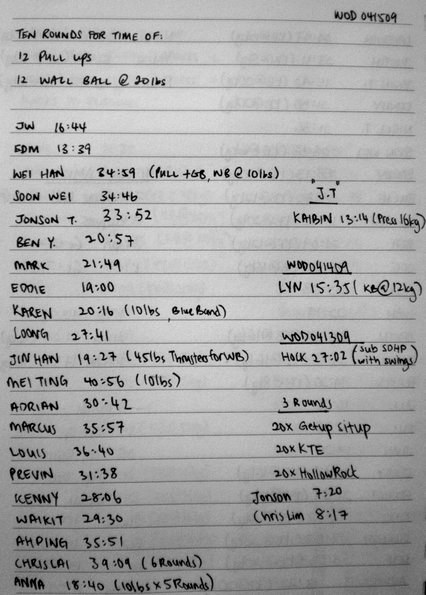 WOD 041509
TEN ROUNDS FOR TIME OF:
12 PULL UPS
12 WALL BALL @ 20lbs
JW 16:44
EDM 13:39
WEI HAN 34:59 (PULL +GB, WB @ 10lbs)
SOON WEI 34:46
JONSON T. 33:52
BEN Y. 20:57
MARK 21:49
EDDIE 19:00
KAREN 20:16 (10lbs, Blue Band)
LOONG 27:41
JIN HAN 19:27 (45lbs Thrusters for WB)
MEI TING 40:56 (10lbs)
ADRIAN 30:42
MARCUS 35:57
LOUIS 36:40
PREVIN 31:38
KENNY 28:06
WAIKIT 29:30
AH PING 35:51
CHRIS LAI 39:09 (6 Rounds)
ANNA 18:40 (10lbs x 5 Rounds)
"J.T"
KAIBIN 13:14 (Pren 16kg)
WOD041409
LYN 15:35 (KB@12kg)
WOD041309
HOCK 27:02 (sub SDHP with swings)
3 Rounds
20x Getup situp
20x KTE
20x Hollow Rock
Jonson 7:20
Chris Lim 8:17